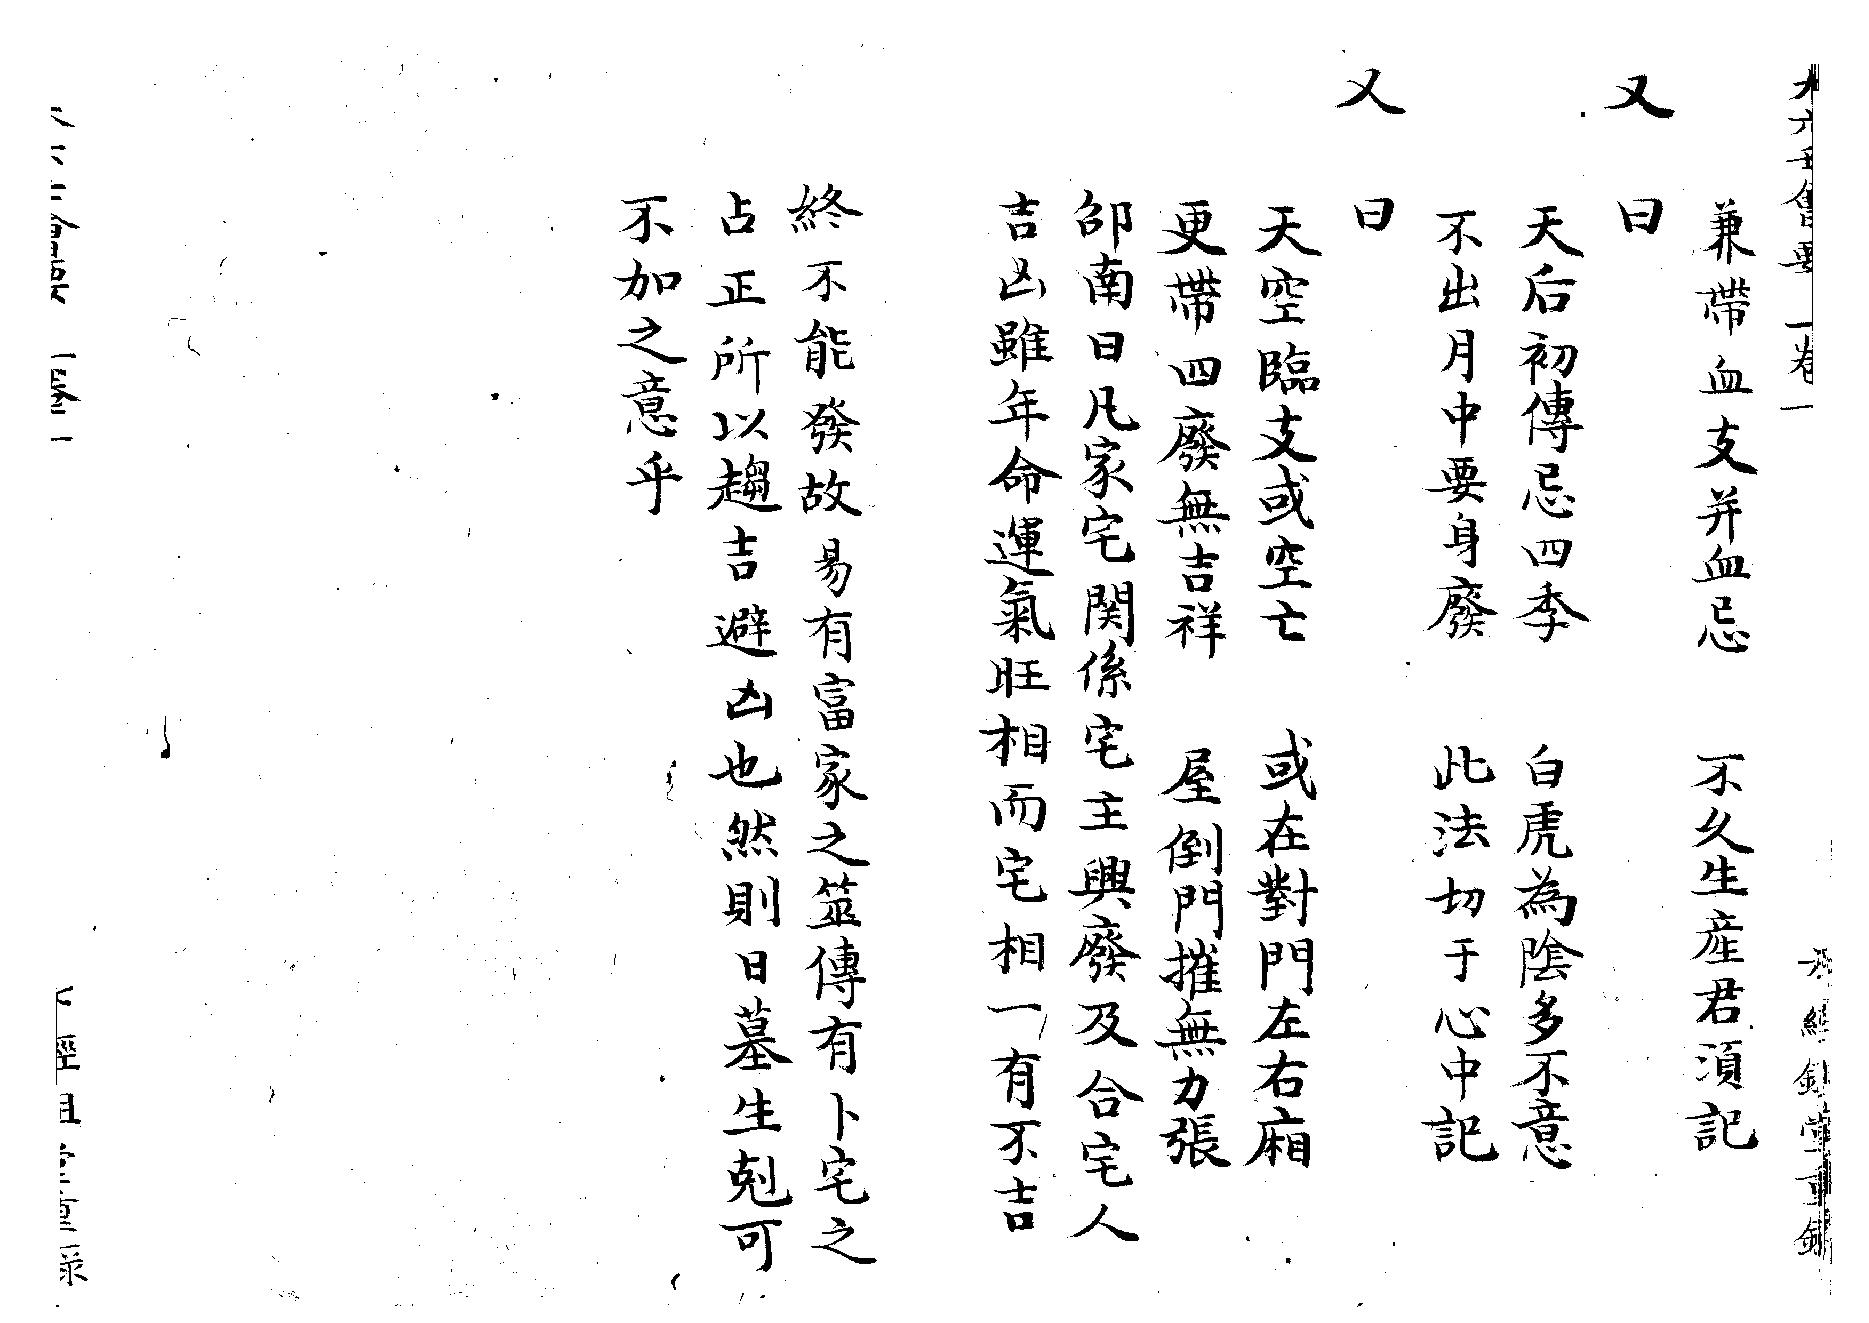 大六壬會要 一卷 一
兼帶血支并血忌 不久生産君須記
又曰
天后初傳忌四季 白虎為陰多不意
不出月中要身廢 此法切于心中記
又曰
天空臨支或空亡 或在對門左右廂
更帶四廢無吉祥 屋倒門摧無力張
邵南曰凡家宅関係宅主興廢及合宅人
吉凶雖年命運氣旺相而宅相一有不吉
終不能發故易有富家之筮傳有卜宅之
占正所以趨吉避凶也然則日墓生剋可
不加之意乎